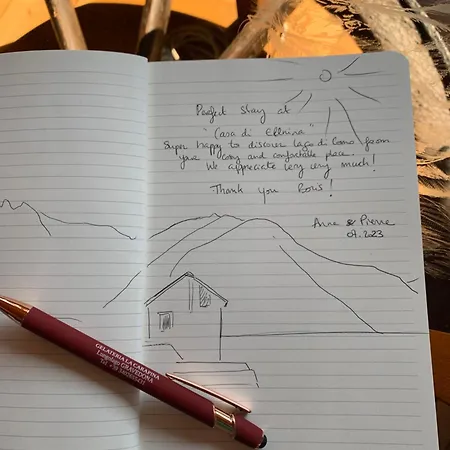 Perfect stay at
"Casa di Ellnina"
Super happy to discover Lago di Como from
your cosy and comfortable place.
We appreciate very very much!
Thank you Boris!
Anne & Pierre
07.2023
GELATERIA LA CARAPINA
Lungolago GRAVEDONA